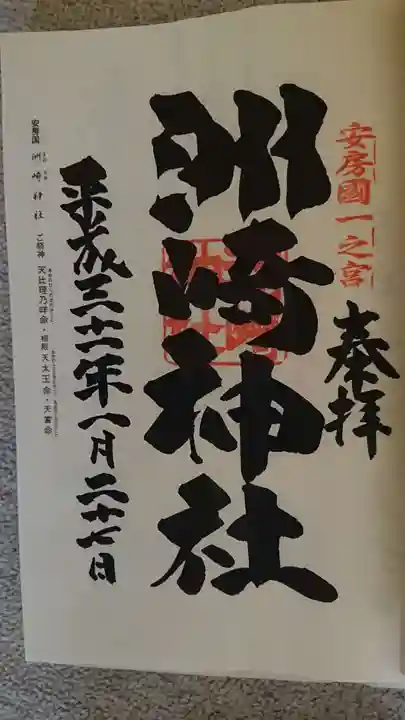 安房國一之宮
奉拝
洲崎神社
平成三十一年一月二十七日
安房国 洲崎神社 ご祭神 天比理乃咩命・相殿 天太玉命・天富命